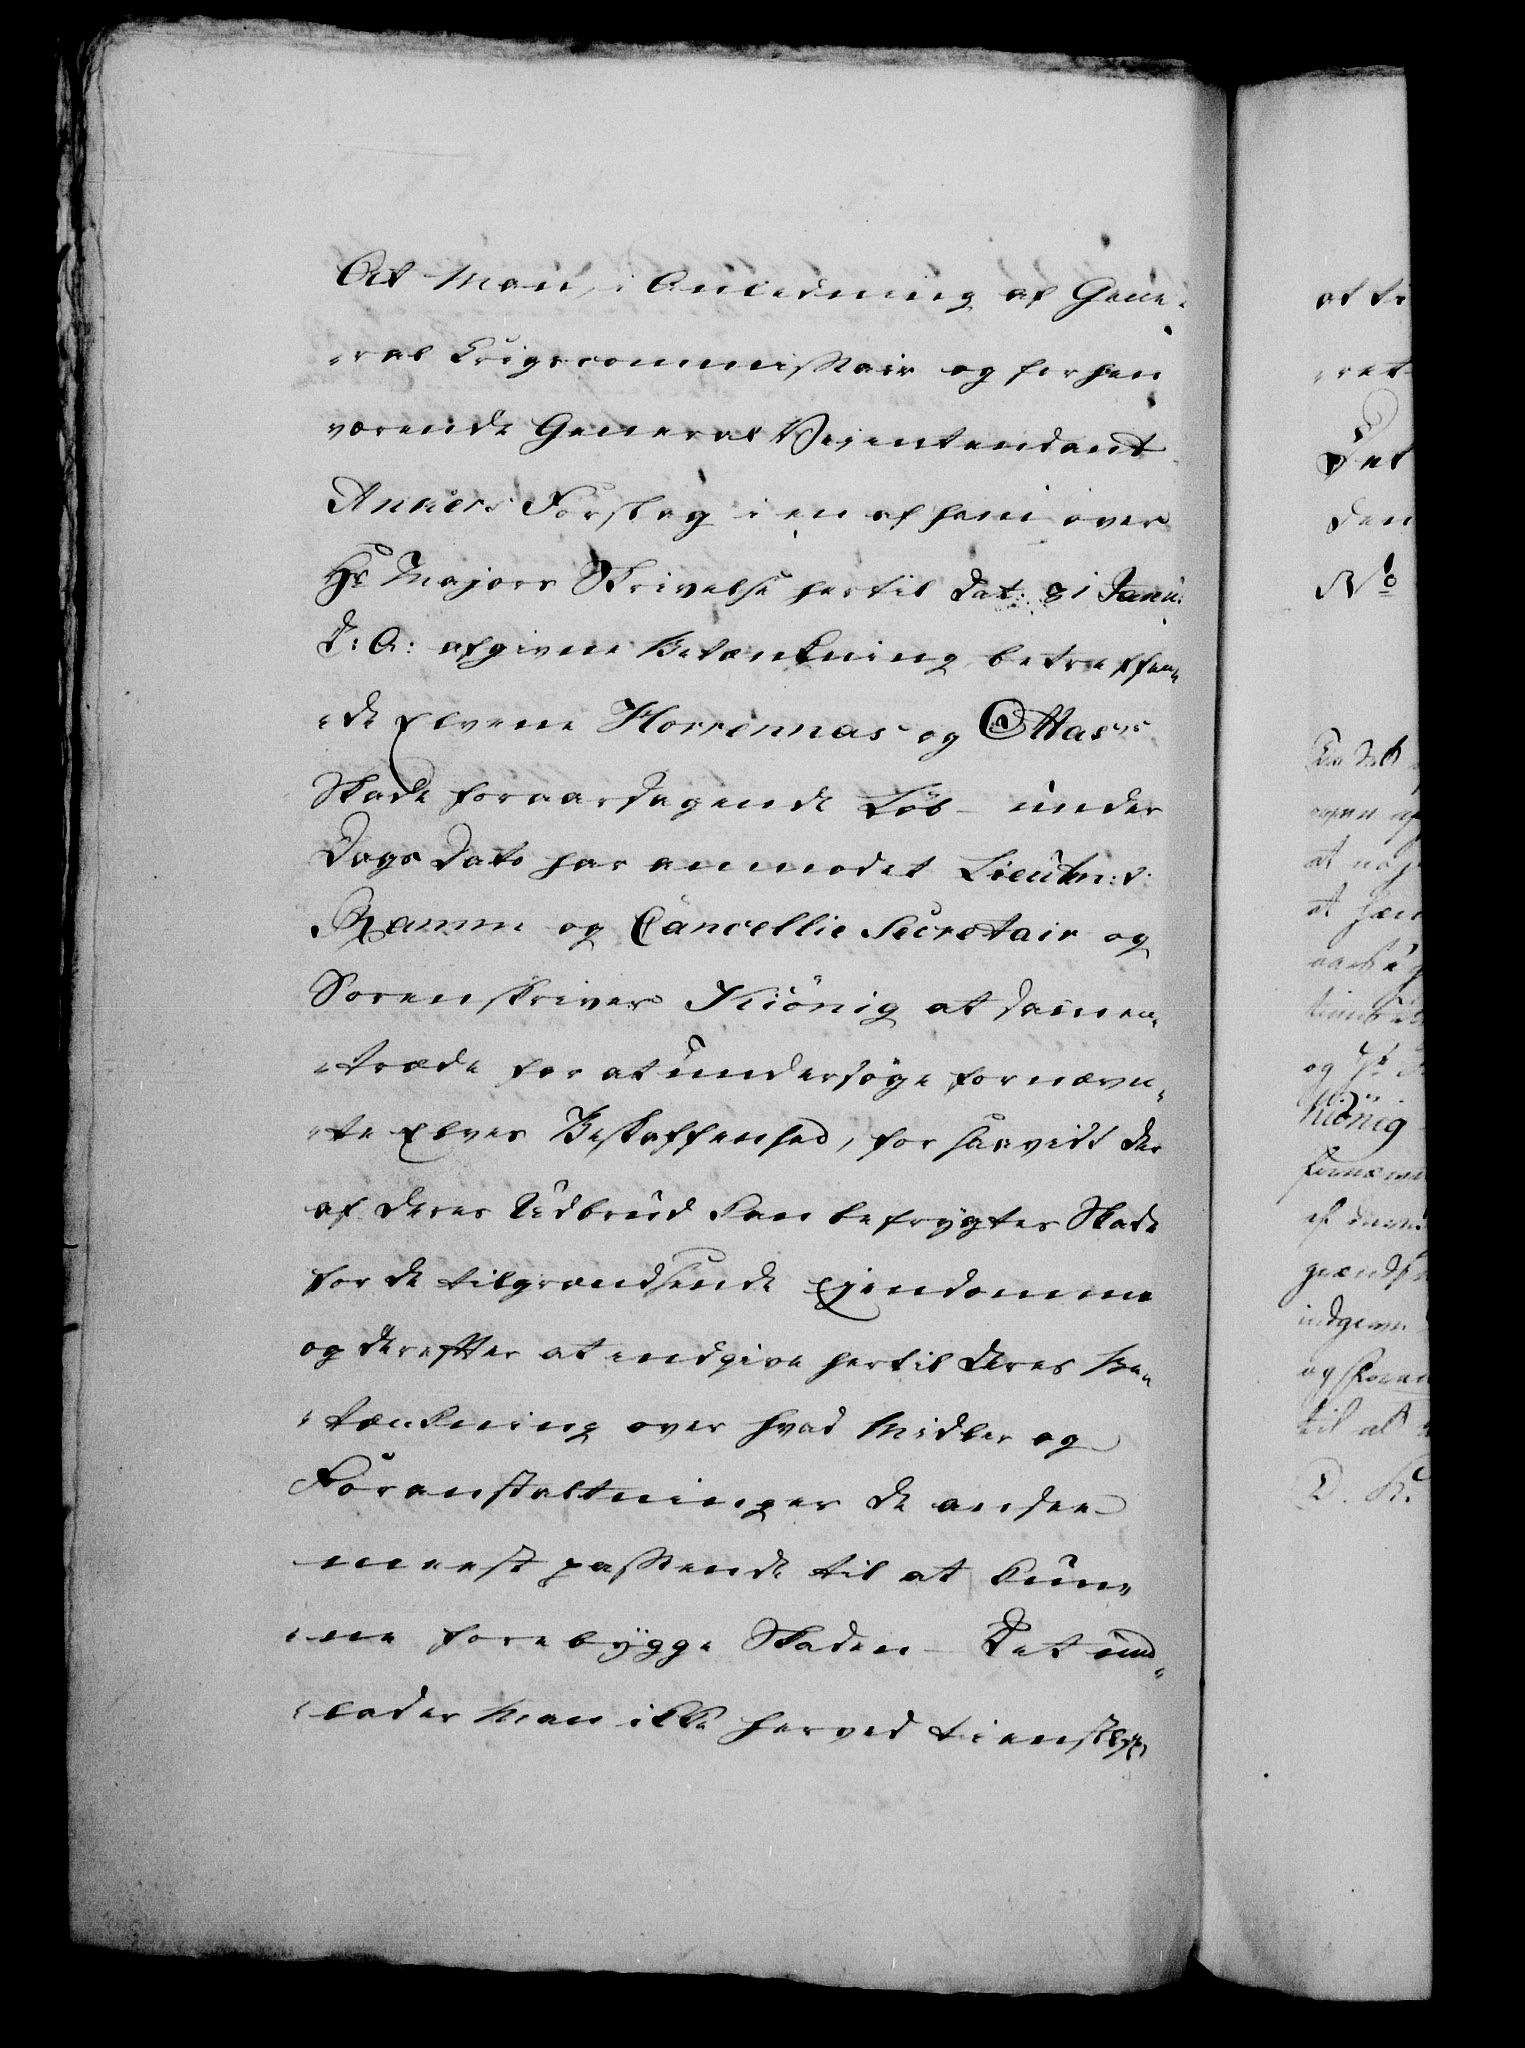 At Man, i Anledning af Gene-
-ral Krigscommissair og forhen
værende General Veiintendant
Ankers Forslag i en af ham over
Hr Majors Skrivelse hertil dat: 31 Janu:
d: A: afgivne Betænkning betreffen-
-de Elvene Horrennas og Ottas
Skade foraarsagende Løb - under
Dags Dato har anmodet Lieutn:t
Ramm og Cancellie Secretair og
Sorenskriver Kiönig at sammen-
-træde for at undersøge fornævn-
-te Elves Beskaffenhed, forsaavidt der
af deres Udbrud kan befrygtes Skade
for de tilgrændsende Ejendomme
og derefter at indgive hertil deres Be-
-tænkning over hvad Midler og
Foranstaltninger de ansee
meest passende til at kun-
-ne forebygge Skaden - Det und-
-lader Man ikke herved tienstlig
af
-ret
Det
den
No
at
at
og Hr
Kiönig
og
til at
D. K.